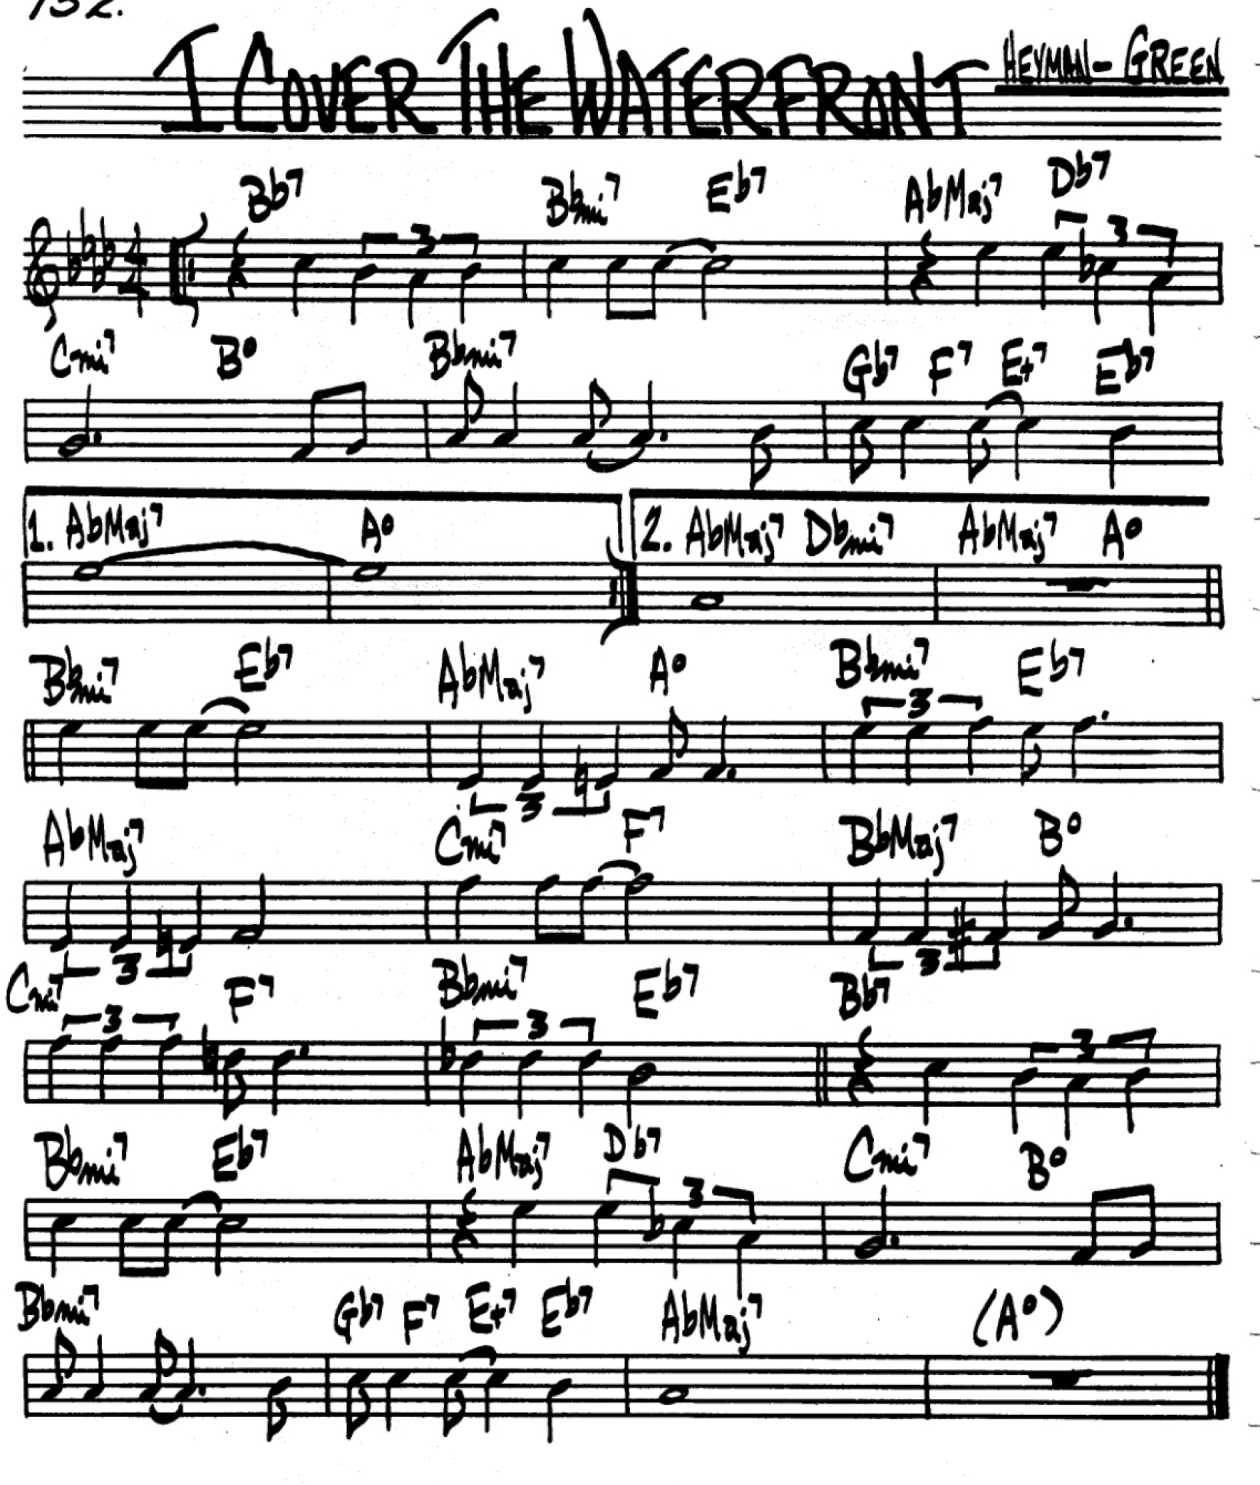 132.
I COVER THE WATERFRONT HEYMAN-GREEN
Bb7 Bbmi7 Eb7 AbMaj7 Db7
4
4
3 3
Cmi7 B° Bbmi7 Gb7 F7 E+7 Eb7
1. AbMaj7 A° 2. AbMaj7 Dbmi7 AbMaj7 A°
Bbmi7 Eb7 AbMaj7 A° Bbmi7 Eb7
3 3
AbMaj7 Cmi7 F7 BbMaj7 B°
3 3
Cmi7 F7 Bbmi7 Eb7 Bb7
3 3 3
Bbmi7 Eb7 AbMaj7 Db7 Cmi7 B°
3
Bbmi7 Gb7 F7 E+7 Eb7 AbMaj7 (A°)